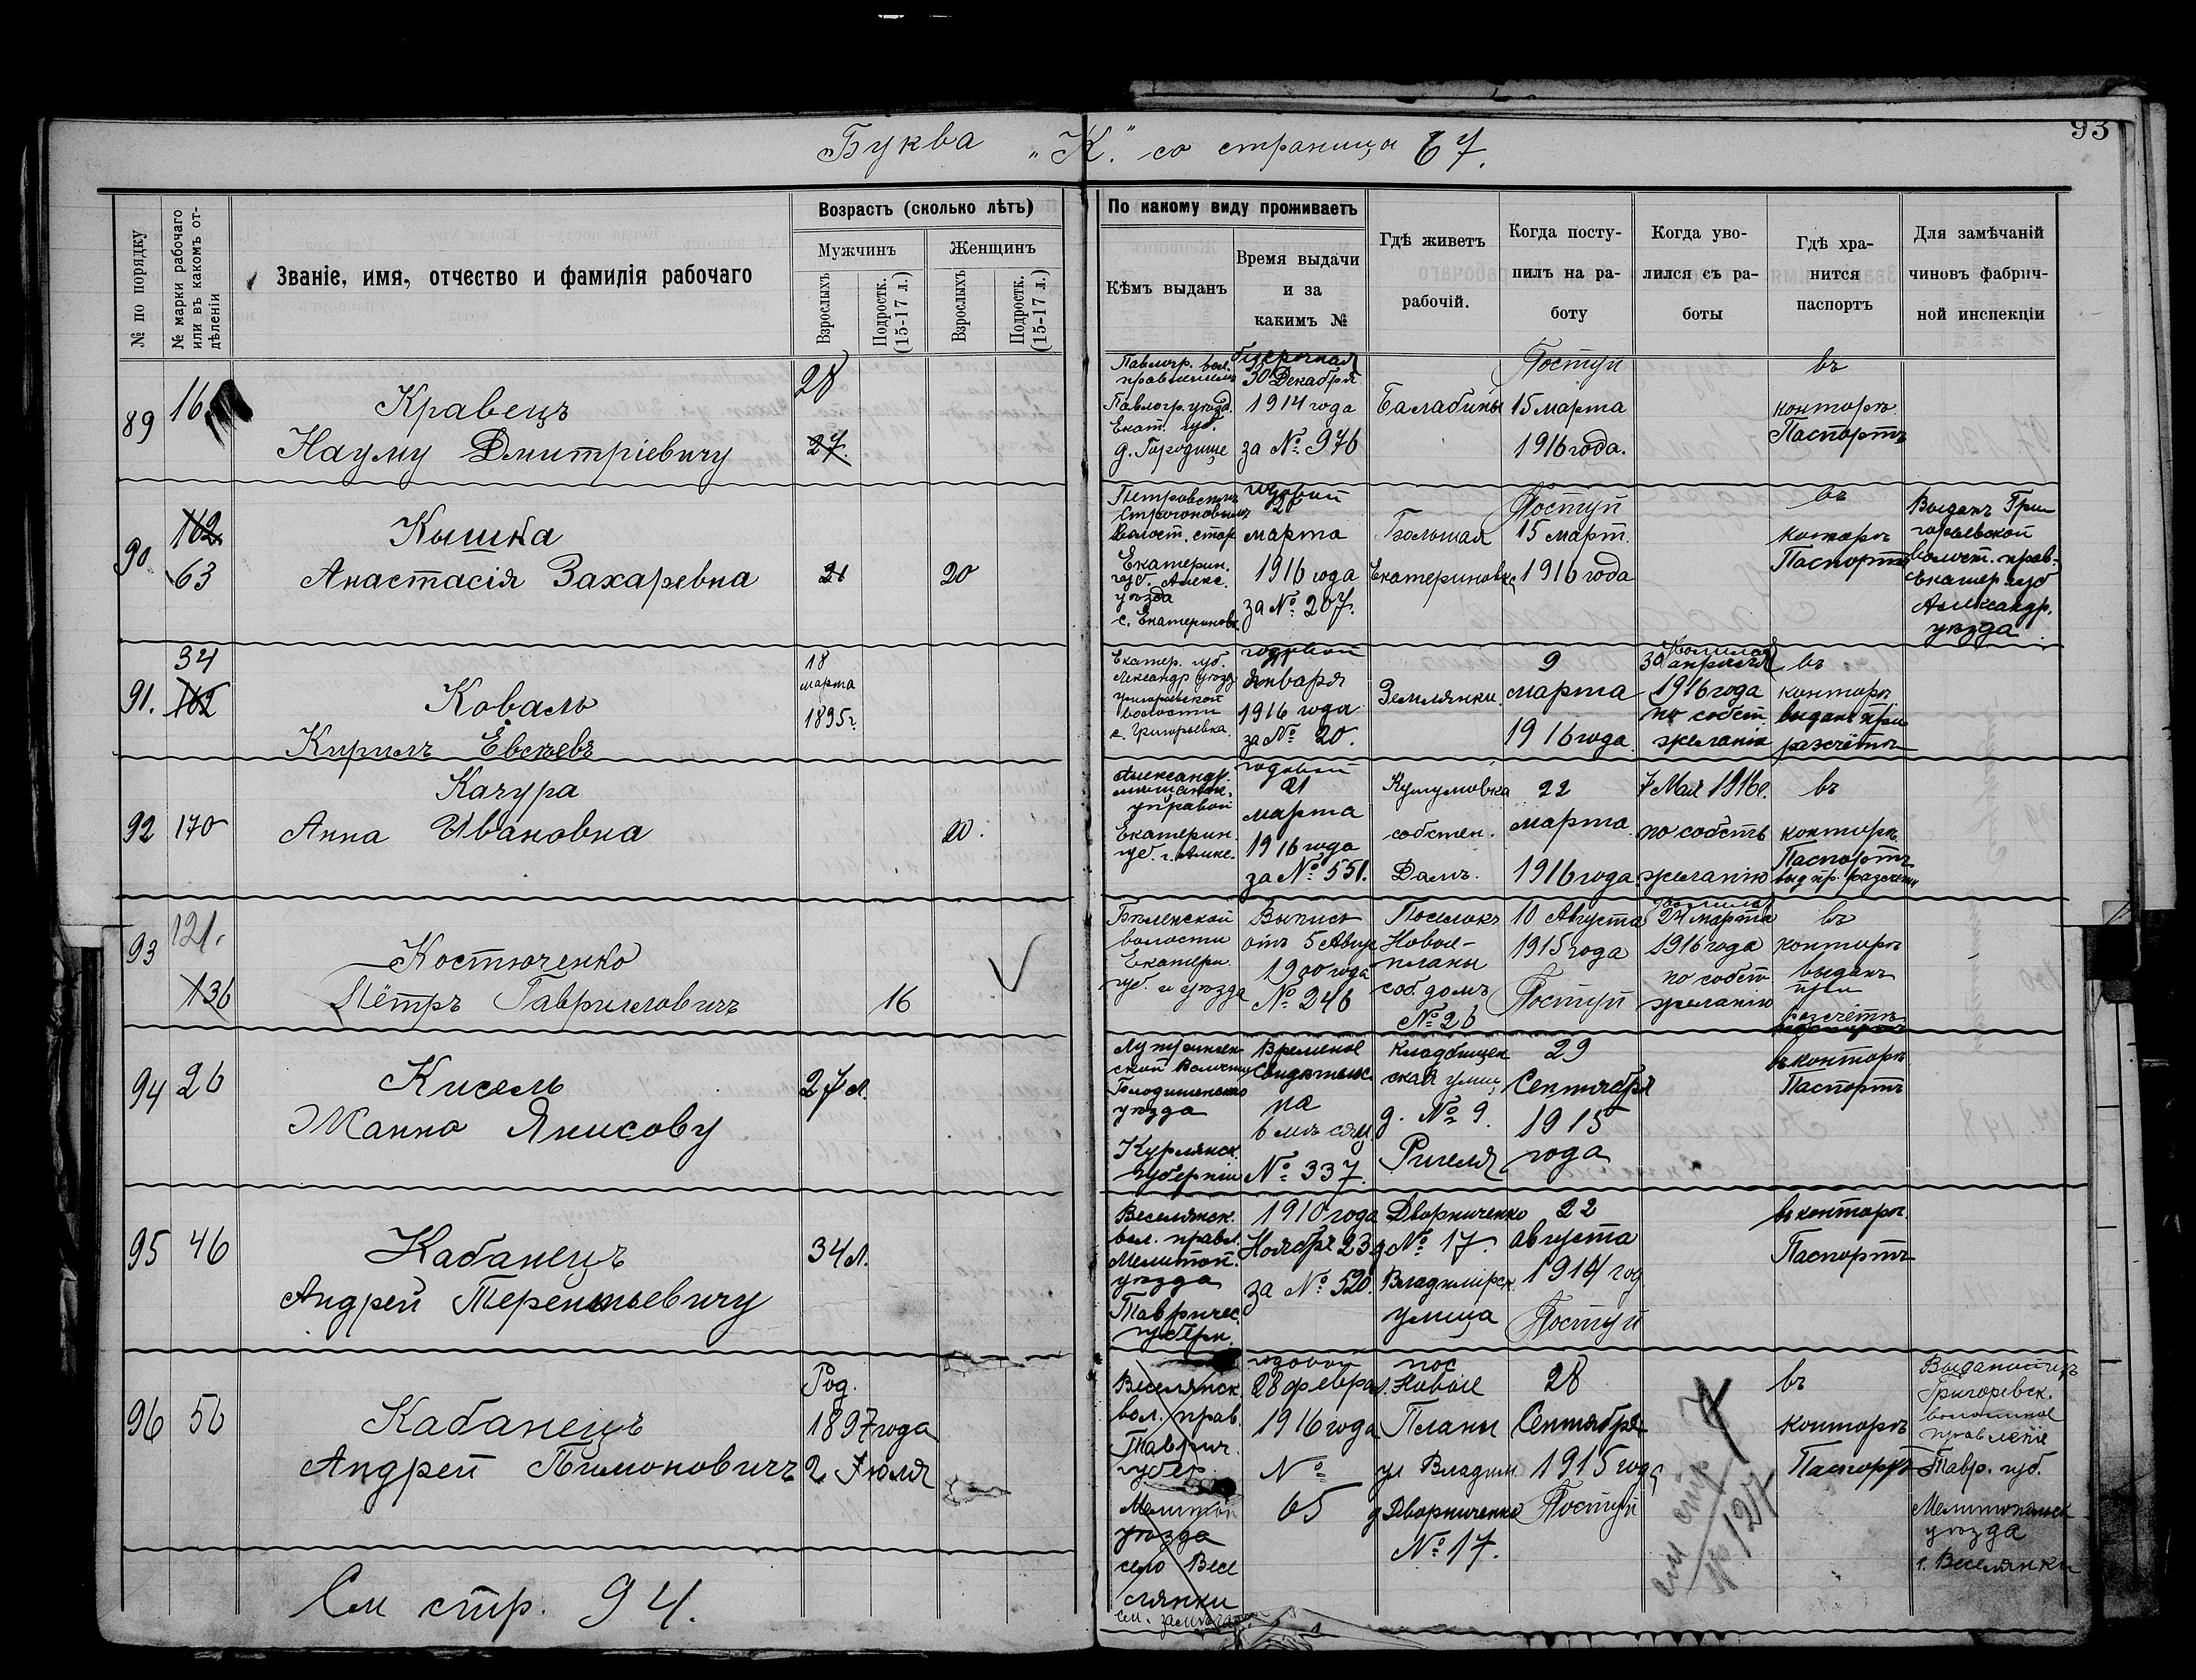 Буква „К." со страницы 67.
93
№ по порядку
№ марки рабочаго или въ какомъ отдѣленіи
Званіе, имя, отчество и фамилія рабочаго
Возрастъ (сколько лѣтъ)
Мужчинъ
Женщинъ
Взрослыхъ
Подростк. (15-17 л.)
Взрослыхъ
Подростк. (15-17 л.)
По какому виду проживаетъ
Кѣмъ выданъ
Время выдачи
и за
какимъ №
Гдѣ живетъ
рабочій.
Когда посту-
пилъ на ра-
боту
Когда уво-
лился съ ра-
боты
Гдѣ хра-
нится
паспортъ
Для замѣчаній
чиновъ фабрич-
ной инспекціи
89
16
Кравецъ
Науму Дмитріевичу
28
27.
Павлогр. вол.
правленіемъ
Павлогр. уѣзд.
Екат. губ.
д. Городище
30 Декабря
1914 года
за № 976
Балабины
Поступ
15 марта
1916 года.
въ
конторѣ
Паспортъ
90
162
63
Кышка
Анастасія Захаревна
21
20
Волост. стар
Екатерин.
губ. Алекс.
уѣзда
с. Екатериновк.
годовой
21
марта
1916 года
за № 207.
Большая
Екатериновк
Поступ
15 март.
1916 года
въ
конторѣ
Паспортъ
Выданъ Гри
горьевской
волост. прав.
Екатер. губ
Александр.
уѣзда
91.
34
162
Коваль
Кирилъ Евсѣевъ
18
марта
1895 г.
Екатер. губ.
Александр уѣзд
Григорьевской
волости
с. Григорьевка.
годовой
Января
1916 года
за № 20.
Землянки
9
марта
1916 года
уволился
30 апрѣля
1916 года
по собст
желанію
въ
конторѣ
выданъ при
разчётѣ
92
170
Качура
Анна Ивановна
20.
Александр.
мѣщанск.
управой
Екатерин.
губ. г. Алекс.
годовой
21
марта
1916 года
за № 551.
собствен.
Домъ.
22
марта
1916 года
7 Мая 1916 г.
по собств
желанію
въ
конторѣ
Паспортъ
выд пр. разсчетѣ
93
121.
136
Костюченко
Пётръ Гавриловичъ
16
волости
Екатери.
губ. и уѣзда
Выпись
отъ 5 Авгус
1900 года
№ 246
Поселокъ
Новые-
планы
соб. домъ
№ 26
10 Августа
1915 года
Поступ
уволился
24 марта
1916 года
по собст
желанію
въ
конторѣ
выданъ
при
разчётѣ
94
26
Кисель
Жанно Янисову
27 л.
ской Волости
уѣзда
Курлянск.
губерніи
Временое
Свидѣтельс
на
6 мѣсяц
№ 337.
Кладбищен
ская улиц
д. № 9.
Ригеля
29
Сентября
1915
года
въ конторѣ
Паспортъ
95
46
Кабанецъ
Андрей Терентьевичу
34 л.
Веселянск.
вол. правл.
Мелитоп.
уѣзда
Тавричес.
губерн.
1910 года
Ноября 23 д
за № 520.
Дворниченко
№ 17.
Владимірск
улица
22
августа
1914 год
Поступ
въ конторѣ
Паспортъ
96
56
Кабанецъ
Андрей Пимоновичъ
Род.
1897 года
2 Іюля
Веселянск.
вол. прав.
Таврич.
губер.
Мелитоп
уѣзда
село Весе
лянки
см. замѣчан
годовой
28 февра
1916 года
№
65
пос
Новые
Планы
ул Владим
д Дворниченко
№ 17.
28
Сентября
1915 года
Поступ
см стр
№ 127
въ
конторѣ
Паспортъ
Григоревск.
волостное
правленіе
Тавр. губ.
Мелитопольск
уѣзда
с. Веселянки
См стр. 94.